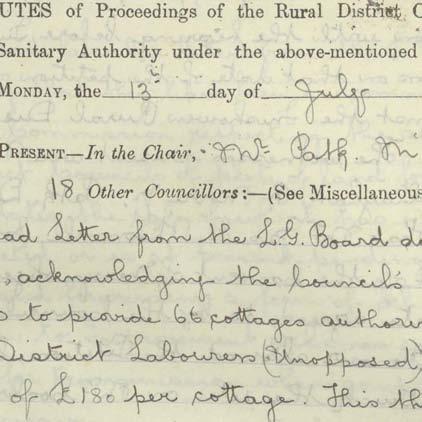 UTES of Proceedings of the Rural District C
Sanitary Authority under the above-mentioned
MONDAY, the 13th day of July
PRESENT—In the Chair, Mr. Patk. M
18 Other Councillors:—(See Miscellaneous
ad Letter from the L.G. Board da
, acknowledging the Council's
s to provide 66 cottages authori
District Labourers (Unopposed)
of £180 per cottage. This th